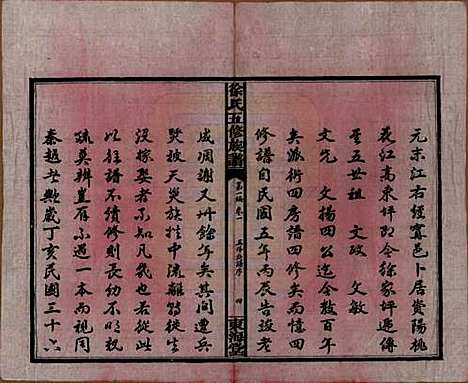 元末江右經寓邑卜居資陽桃
花江高東坪即今徐家坪遞傳
至五世祖 文政 文敏
文先 文揚四公迄今數百年
矣派術四房譜四修矣而憶四
修譜自民國五年丙辰告竣
徐氏五修族譜
第一編卷一 五修族譜序 四
東海堂
咸凋謝又卅餘年矣其間遭兵
燹被天災族挡中流離夠徙生
沒嫁娶者不知凡幾若從此
以往譜不續修則長幼不明視
疏莫辨豈有不過一本而視同
秦越者歟歲丁亥民國三十六